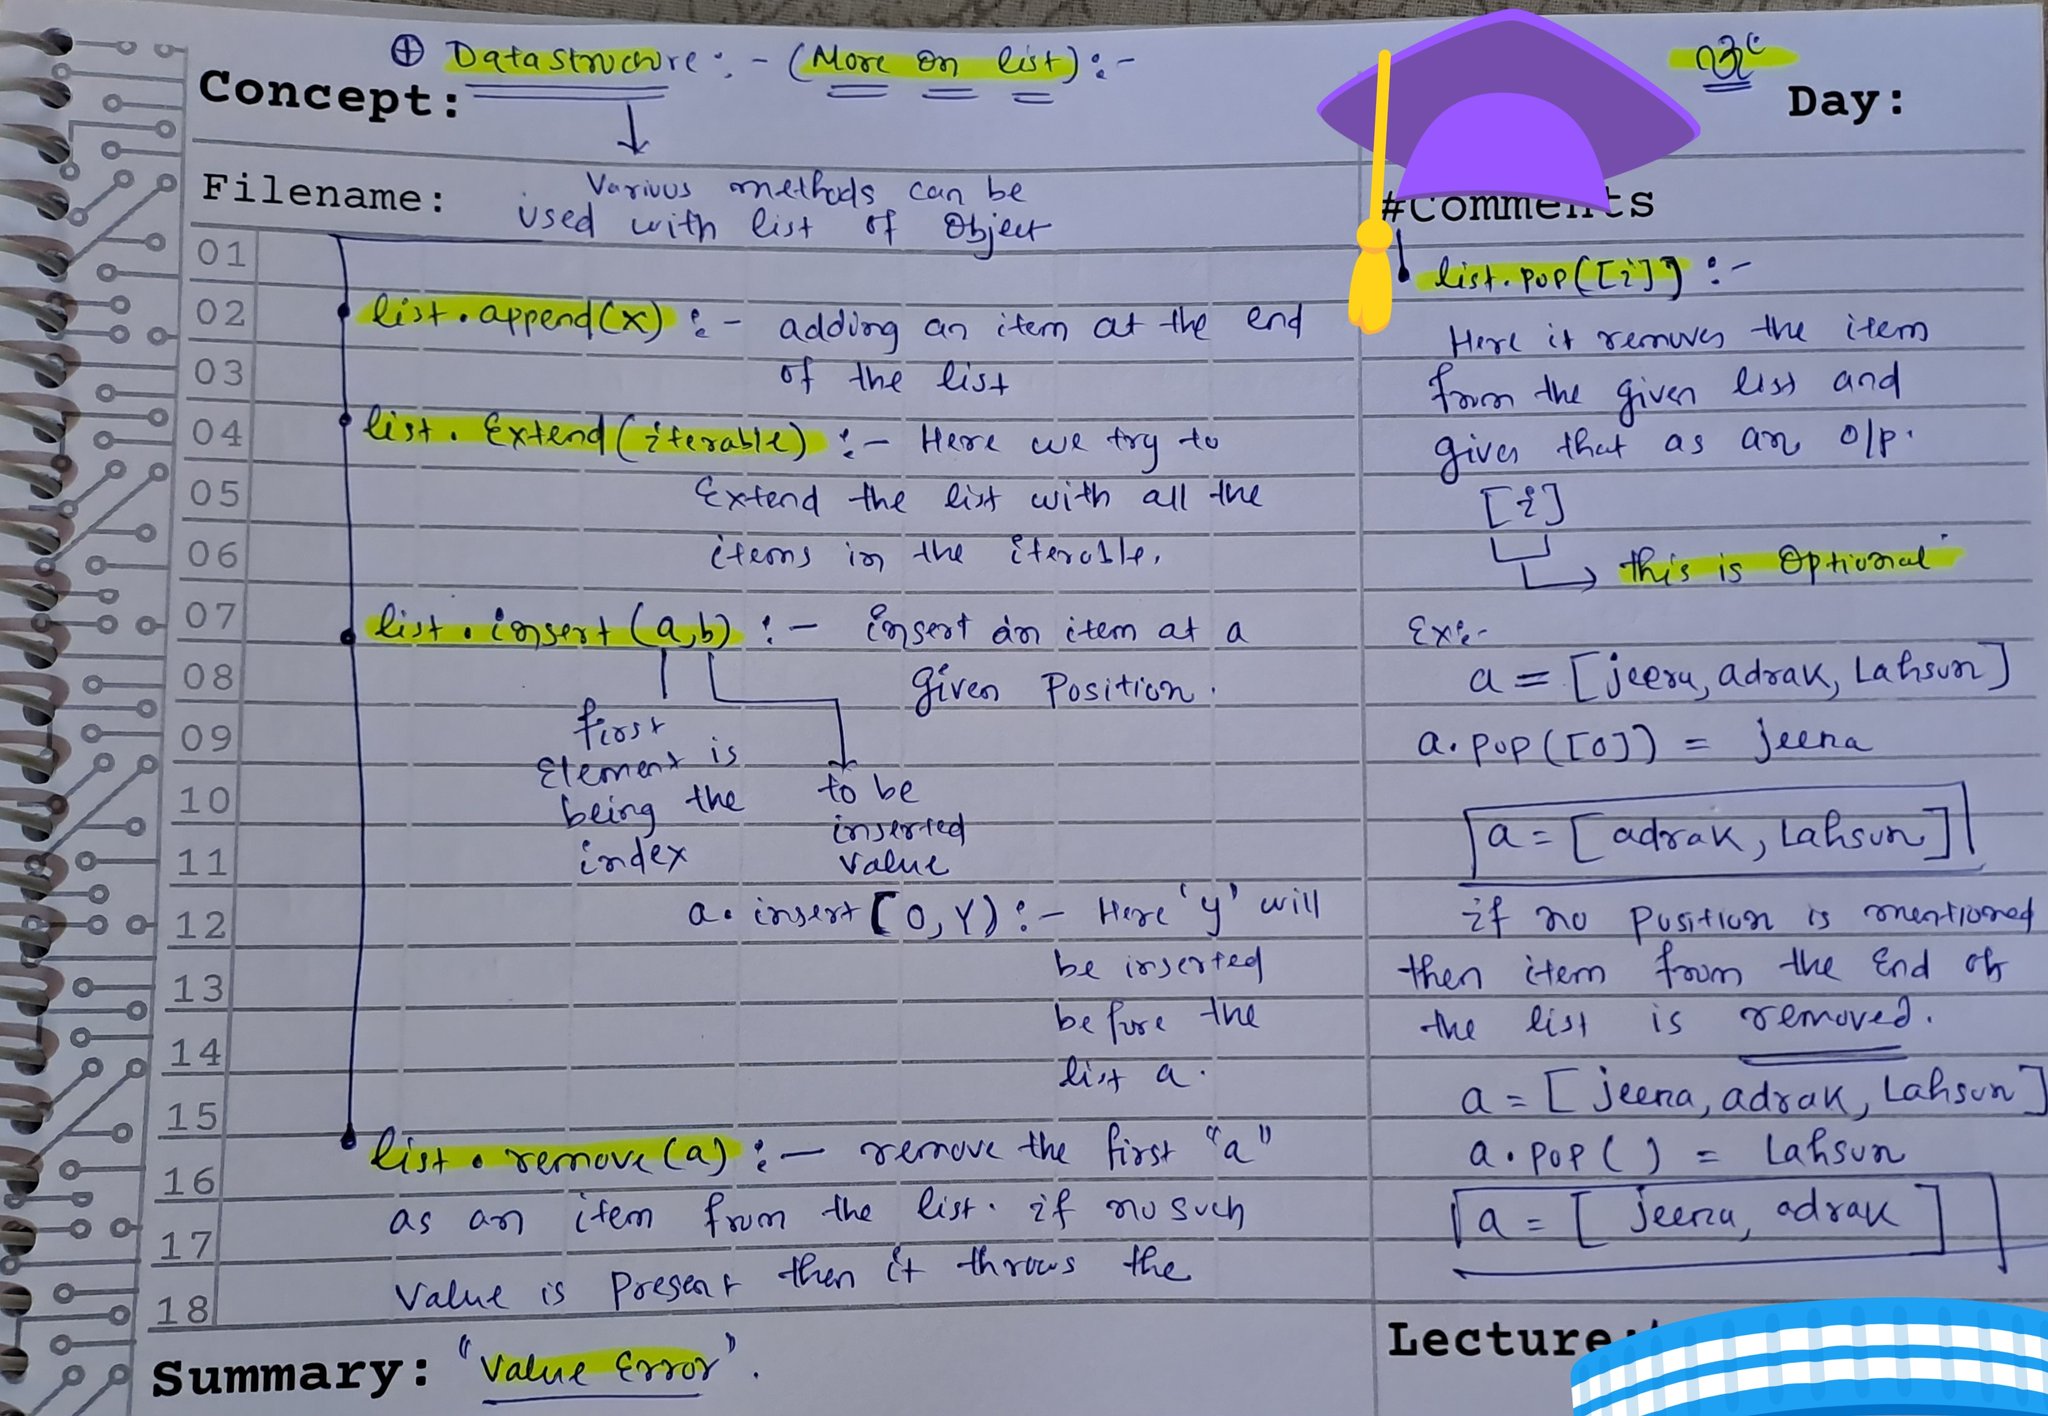 ⊕ Data Structure :- (More on list) :-
Concept:
Day:
Filename:
Various methods can be
used with list of Object
#Comments
01
02
03
04
05
06
07
08
09
10
11
12
13
14
15
16
17
18
list.append(x) :- adding an item at the end
of the list
list.Extend(iterable) :- Here we try to
Extend the list with all the
items in the iterable.
list.insert(a,b) :- insert an item at a
given Position.
first
Element is
being the
index
to be
inserted
value
a.insert[0,Y) :- Here 'y' will
be inserted
before the
list a.
list.remove(a) :- remove the first "a"
as an item from the list. if no such
value is Present then it throws the
Summary: "Value Error".
list.pop([i]) :-
Here it removes the item
from the given list and
gives that as an o/p.
[i]
this is Optional
Ex:-
a = [jeera, adrak, Lahsun]
a.pop([0]) = jeera
a = [adrak, Lahsun]
if no position is mentioned
then item from the End of
the list is removed.
a = [jeera, adrak, Lahsun]
a.pop() = Lahsun
a = [jeera, adrak]
Lecture: